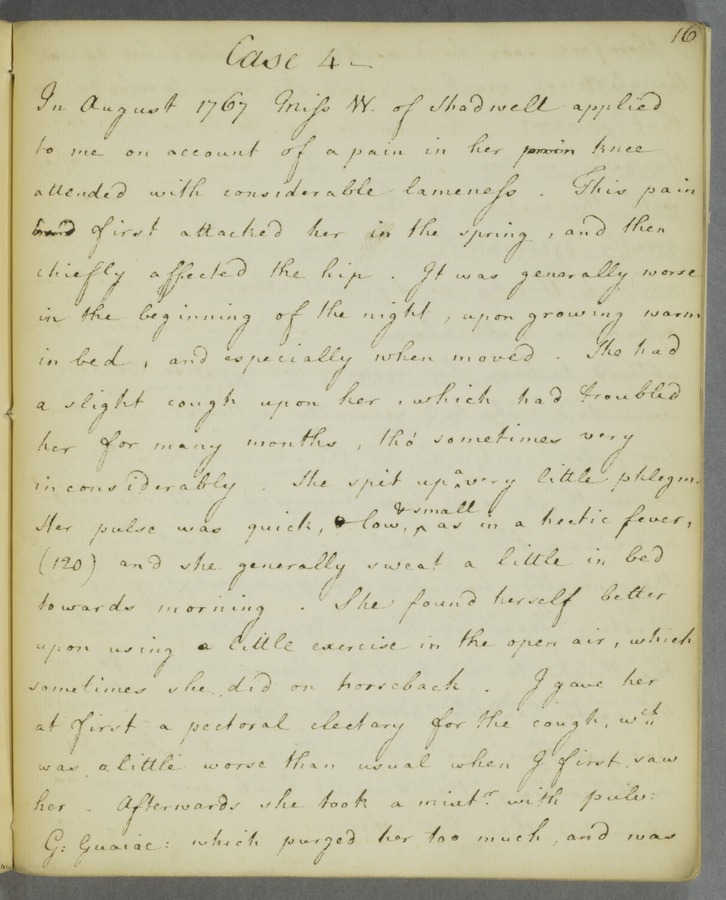 16
Case 4
In August 1767 Miss W. of Shadwell applied
to me on account of a pain in her pain knee
attended with considerable lameness. This pain
first attacked her in the spring, and then
chiefly affected the hip. It was generally worse
in the beginning of the night, upon growing warm
in bed, and especially when moved. She had
a slight cough upon her, which had troubled
her for many months, tho' sometimes very
inconsiderably. She spit up a very little phlegm.
Her pulse was quick, low, & small as in a hectic fever,
(120) and she generally sweat a little in bed
towards morning. She found herself better
upon using a little exercise in the open air, which
sometimes she did on horseback. I gave her
at first a pectoral electary for the cough, wch
was a little worse than usual when I first saw
her. Afterwards she took a mixtr. with pulv:
G: Guaiac: which purged her too much, and was